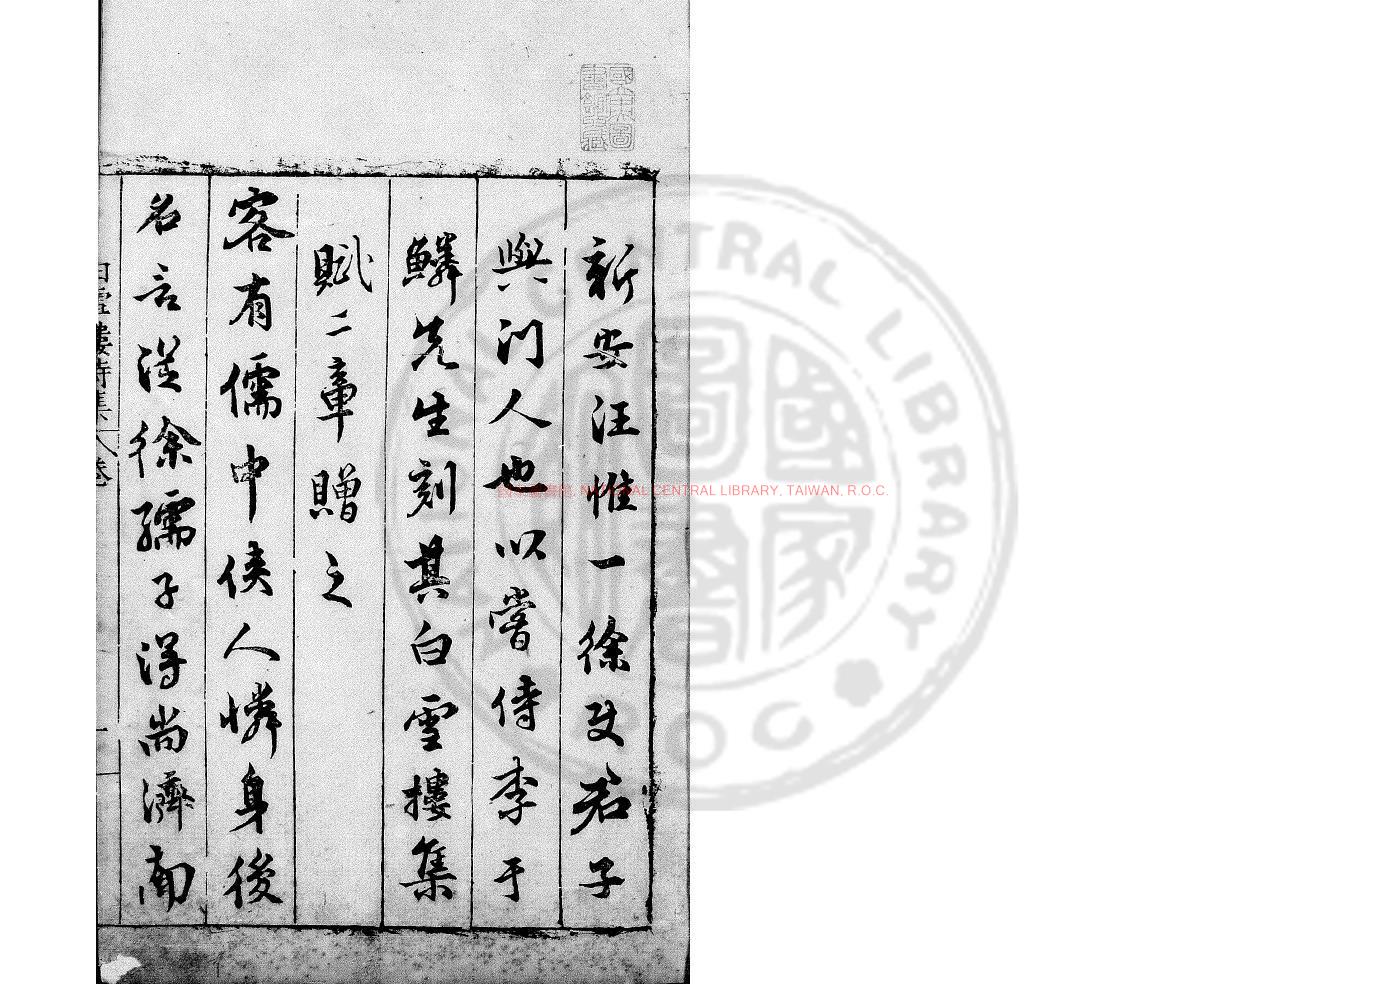 新安汪惟一徐史君子
與門人也以嘗侍李于
鱗先生刻其白雪樓集
賦二章贈之
客有儒中俠人憐身後
名言從徐孺子得尚濟南
白雪樓詩集 卷
國家圖書館藏
國家圖書館 NATIONAL CENTRAL LIBRARY, TAIWAN, R.O.C.
NATIONAL CENTRAL LIBRARY
ROC